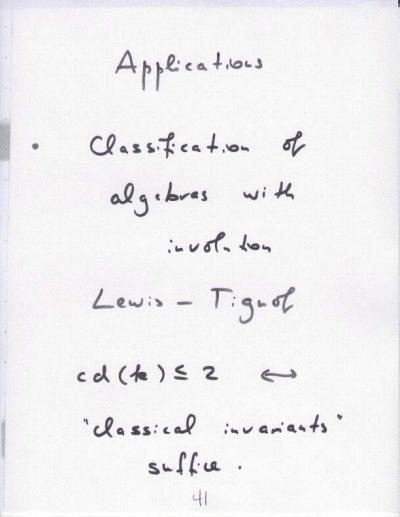 Applications
• Classification of
algebras with
involution
Lewis – Tignol
cd(k) ≤ 2 ↔
"classical invariants"
suffice.
41